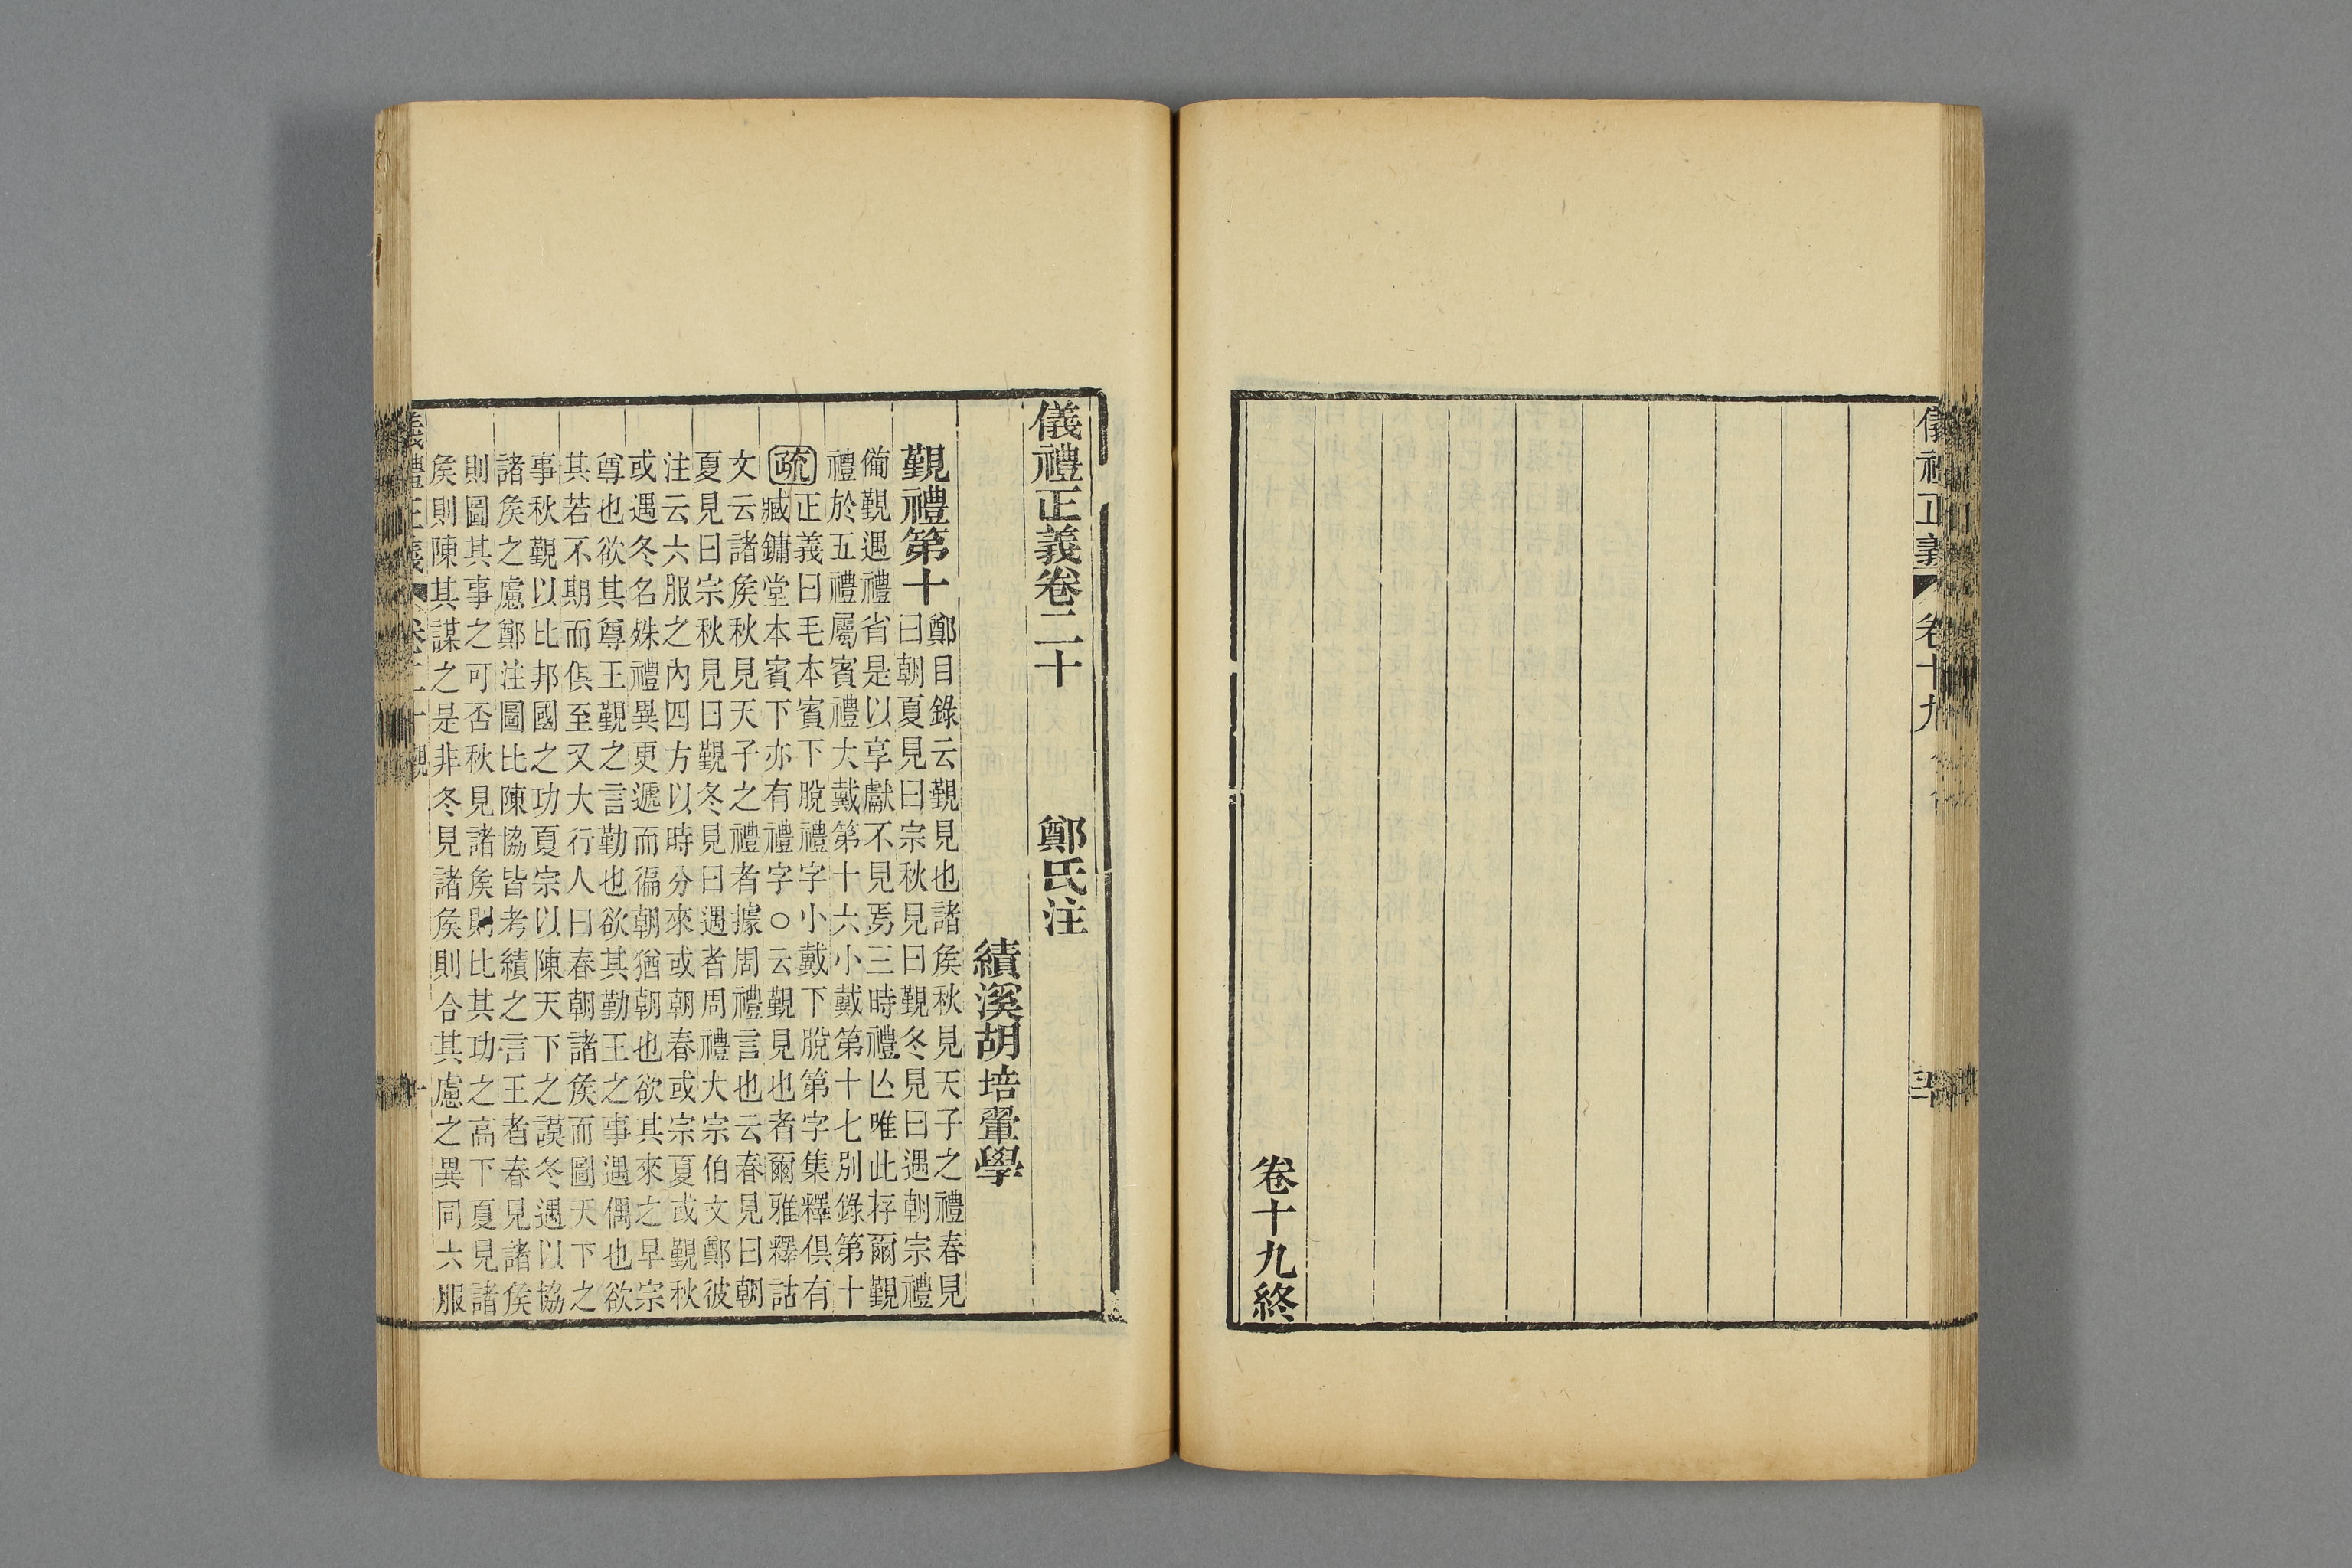 儀禮正義
卷十九
卷十九終
儀禮正義卷二十
鄭氏注
績溪胡培翬學
覲禮第十
鄭目錄云覲見也諸矦秋見天子之禮春見
曰朝夏見曰宗秋見曰覲冬見曰遇朝宗禮
備覲遇禮省是以享獻不見焉三時禮亾唯此存爾覲
禮於五禮屬賓禮大戴第十六小戴第十七別錄第十
疏
正義曰毛本賓下脫禮字小戴下脫第字集釋俱有
臧鏞堂本賓下亦有禮字○云覲見也者爾雅釋詁
文云諸矦秋見天子之禮者據周禮言也云春見曰朝
夏見曰宗秋見曰覲冬見曰遇者周禮大宗伯文鄭彼
注云六服之內四方以時分來或朝春或宗夏或覲秋
或遇冬名姝禮異更遞而徧朝猶朝也欲其來之早宗
尊也欲其尊王覲之言勤也欲其勤王之事遇偶也欲
其若不期而倶至又大行人曰春朝諸矦而圖天下之
事秋覲以比邦國之功夏宗以陳天下之謨冬遇以協
諸矦之慮鄭注圖比陳協皆考績之言王者春見諸矦
則圖其事之可否秋見諸矦則比其功之高下夏見諸
矦則陳其謀之是非冬見諸矦則合其慮之異同六服
儀禮正義
卷二十
覲
一